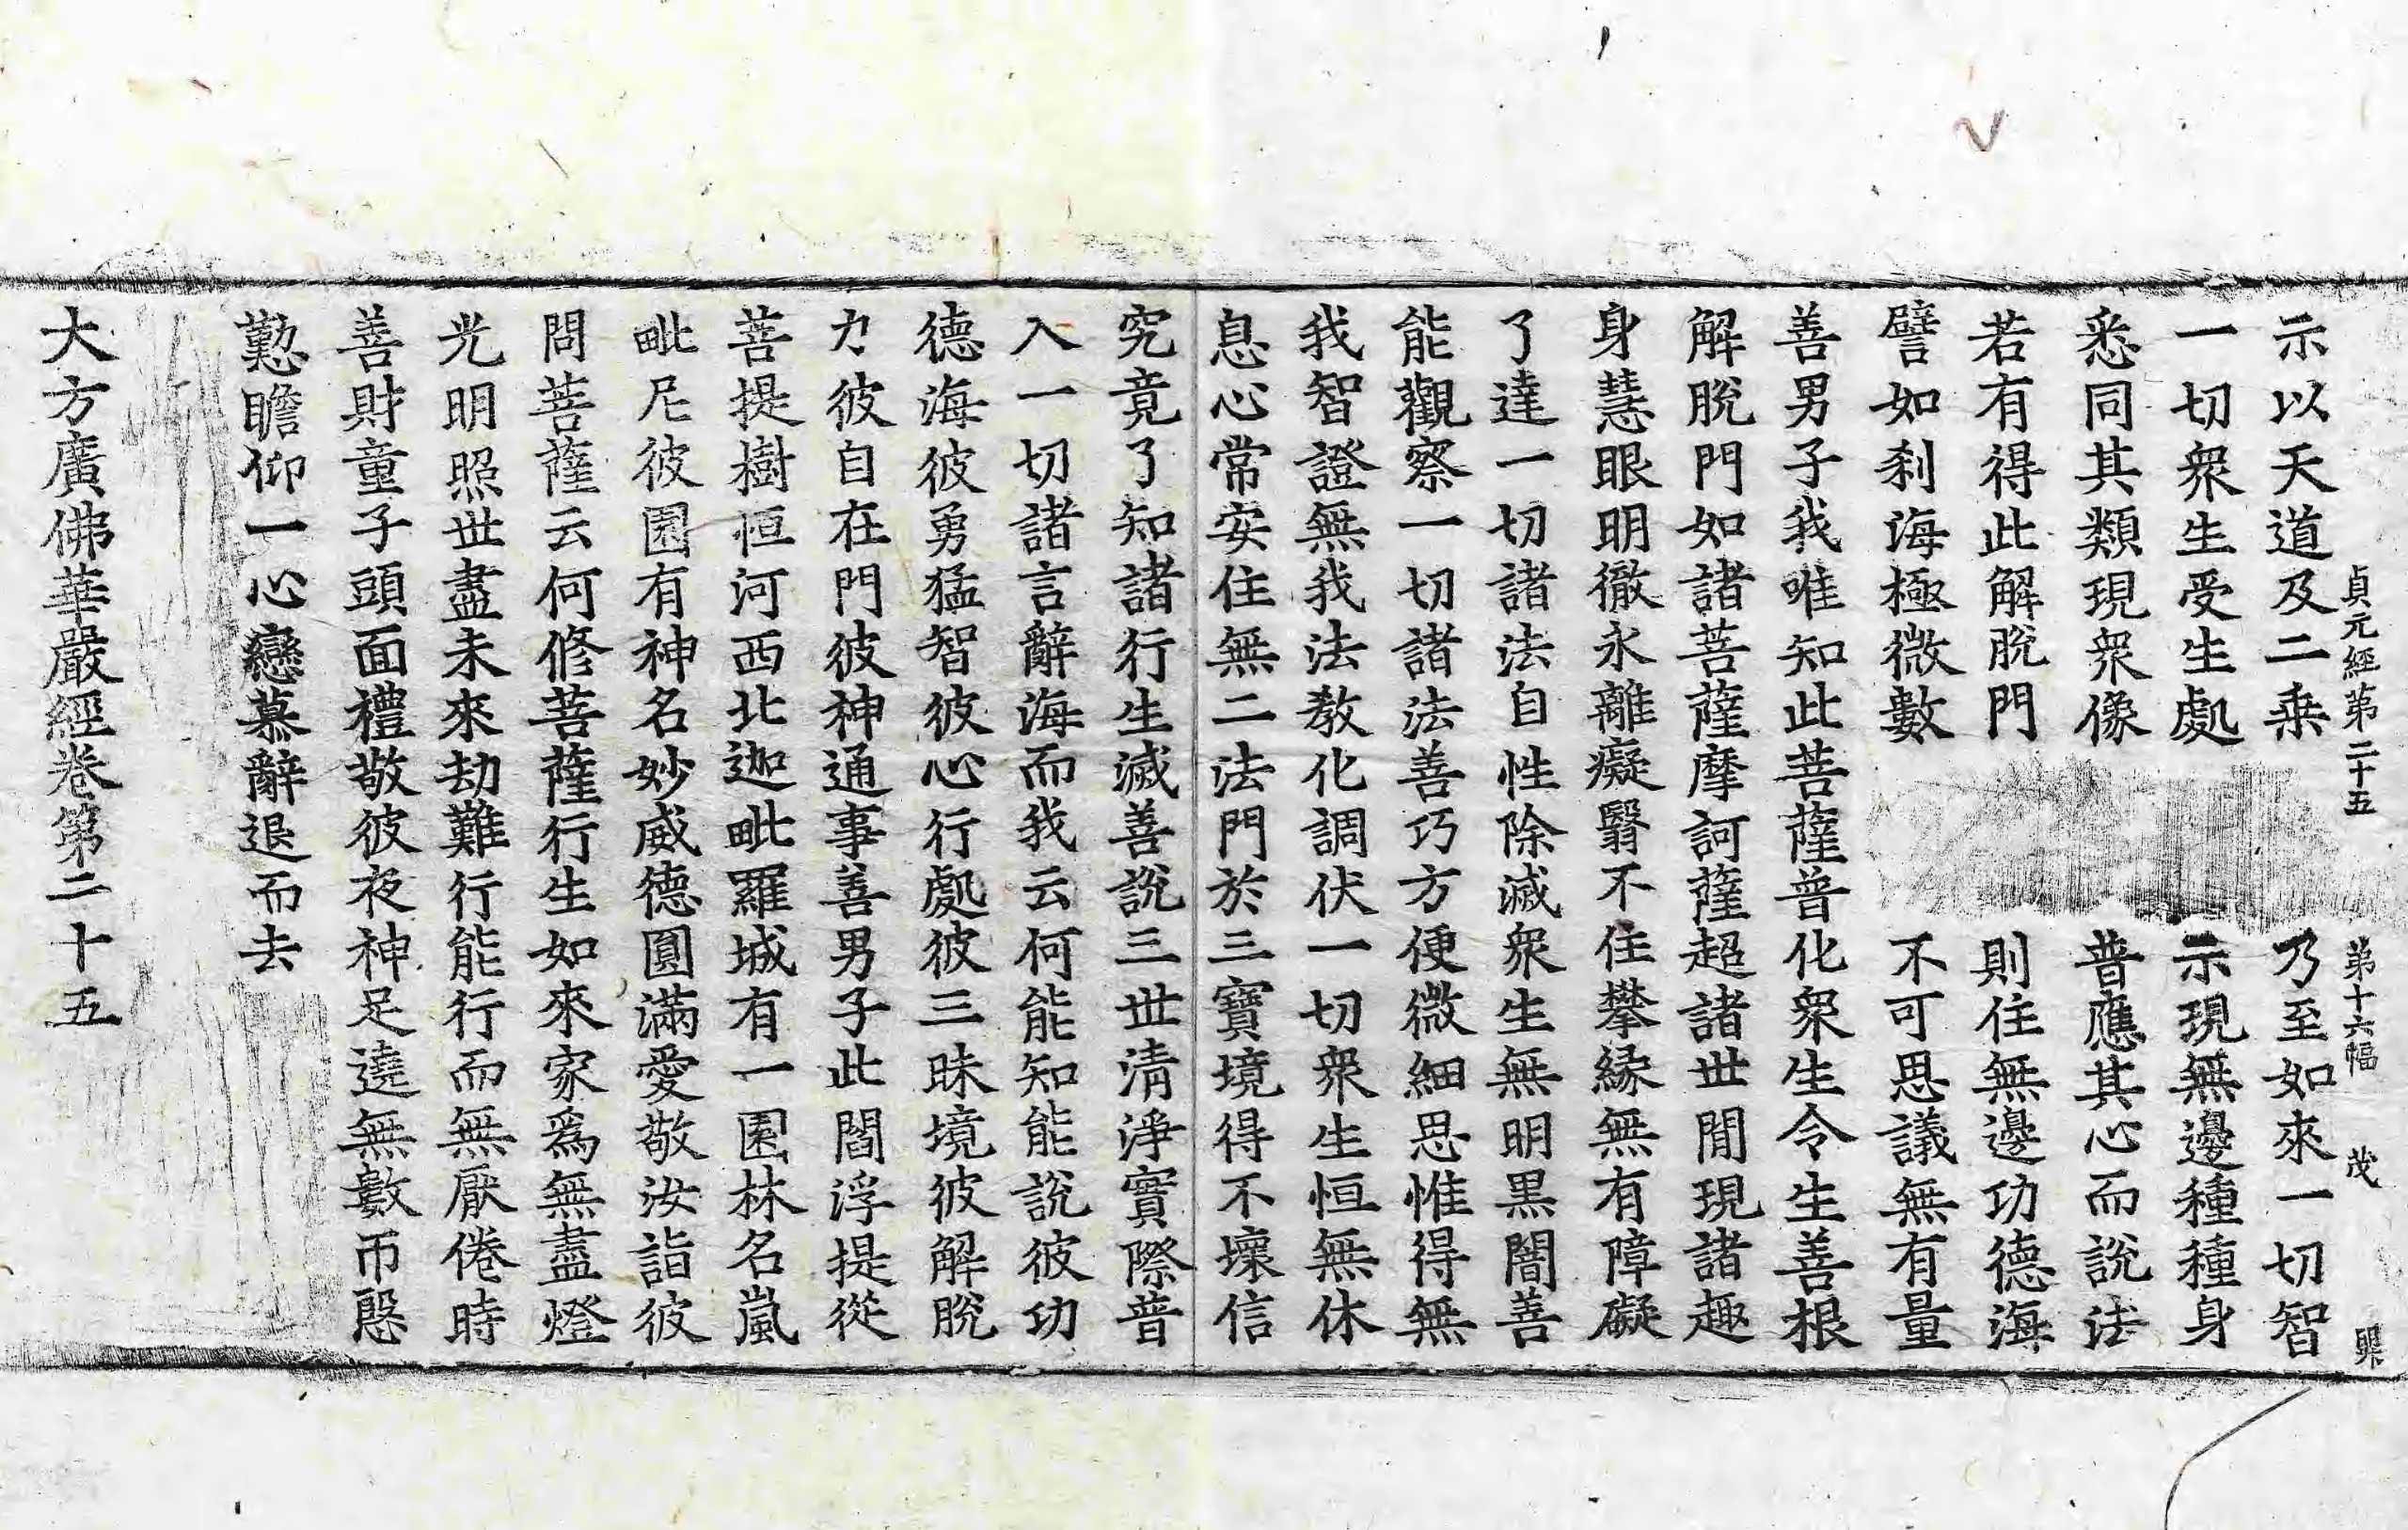 貞元經第二十五 第十六幅 茂
示以天道及二乘 乃至如來一切智
一切衆生受生處 示現無邊種種身
悉同其類現衆像 普應其心而說法
若有得此解脫門 則住無邊功德海
譬如刹海極微數 不可思議無有量
善男子我唯知此菩薩普化衆生令生善根
解脫門如諸菩薩摩訶薩超諸世間現諸趣
身慧眼明徹永離癡翳不住攀緣無有障礙
了達一切諸法自性除滅衆生無明黑闇善
能觀察一切諸法善巧方便微細思惟得無
我智證無我法教化調伏一切衆生恒無休
息心常安住無二法門於三寶境得不壞信
究竟了知諸行生滅善說三世清淨實際普
入一切諸言辭海而我云何能知能說彼功
德海彼勇猛智彼心行處彼三昧境彼解脫
力彼自在門彼神通事善男子此閻浮提從
菩提樹恒河西北迦毗羅城有一園林名嵐
毗尼彼園有神名妙威德圓滿愛敬汝詣彼
問菩薩云何修菩薩行生如來家爲無盡燈
光明照世盡未來劫難行能行而無厭倦時
善財童子頭面禮敬彼夜神足遶無數帀慇
懃瞻仰一心戀慕辭退而去
大方廣佛華嚴經卷第二十五